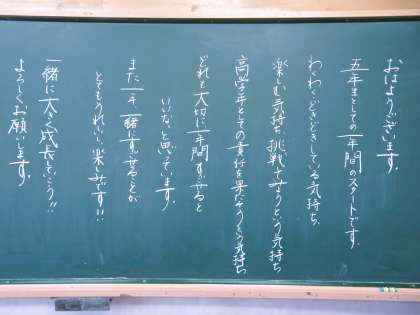 おはようございます。
五年生としての一年間のスタートです。
わくわく、どきどきしている気持ち、
楽しむ気持ち、挑戦してみようという気持ち
高学年としての責任を果たそうという気持ち
どれも大切に一年間すごせると
いいなと思っています。
また一年、一緒にすごせることが
とてもうれしいし、楽しみです!!
一緒に大きく成長しよう!!
よろしくお願いします。